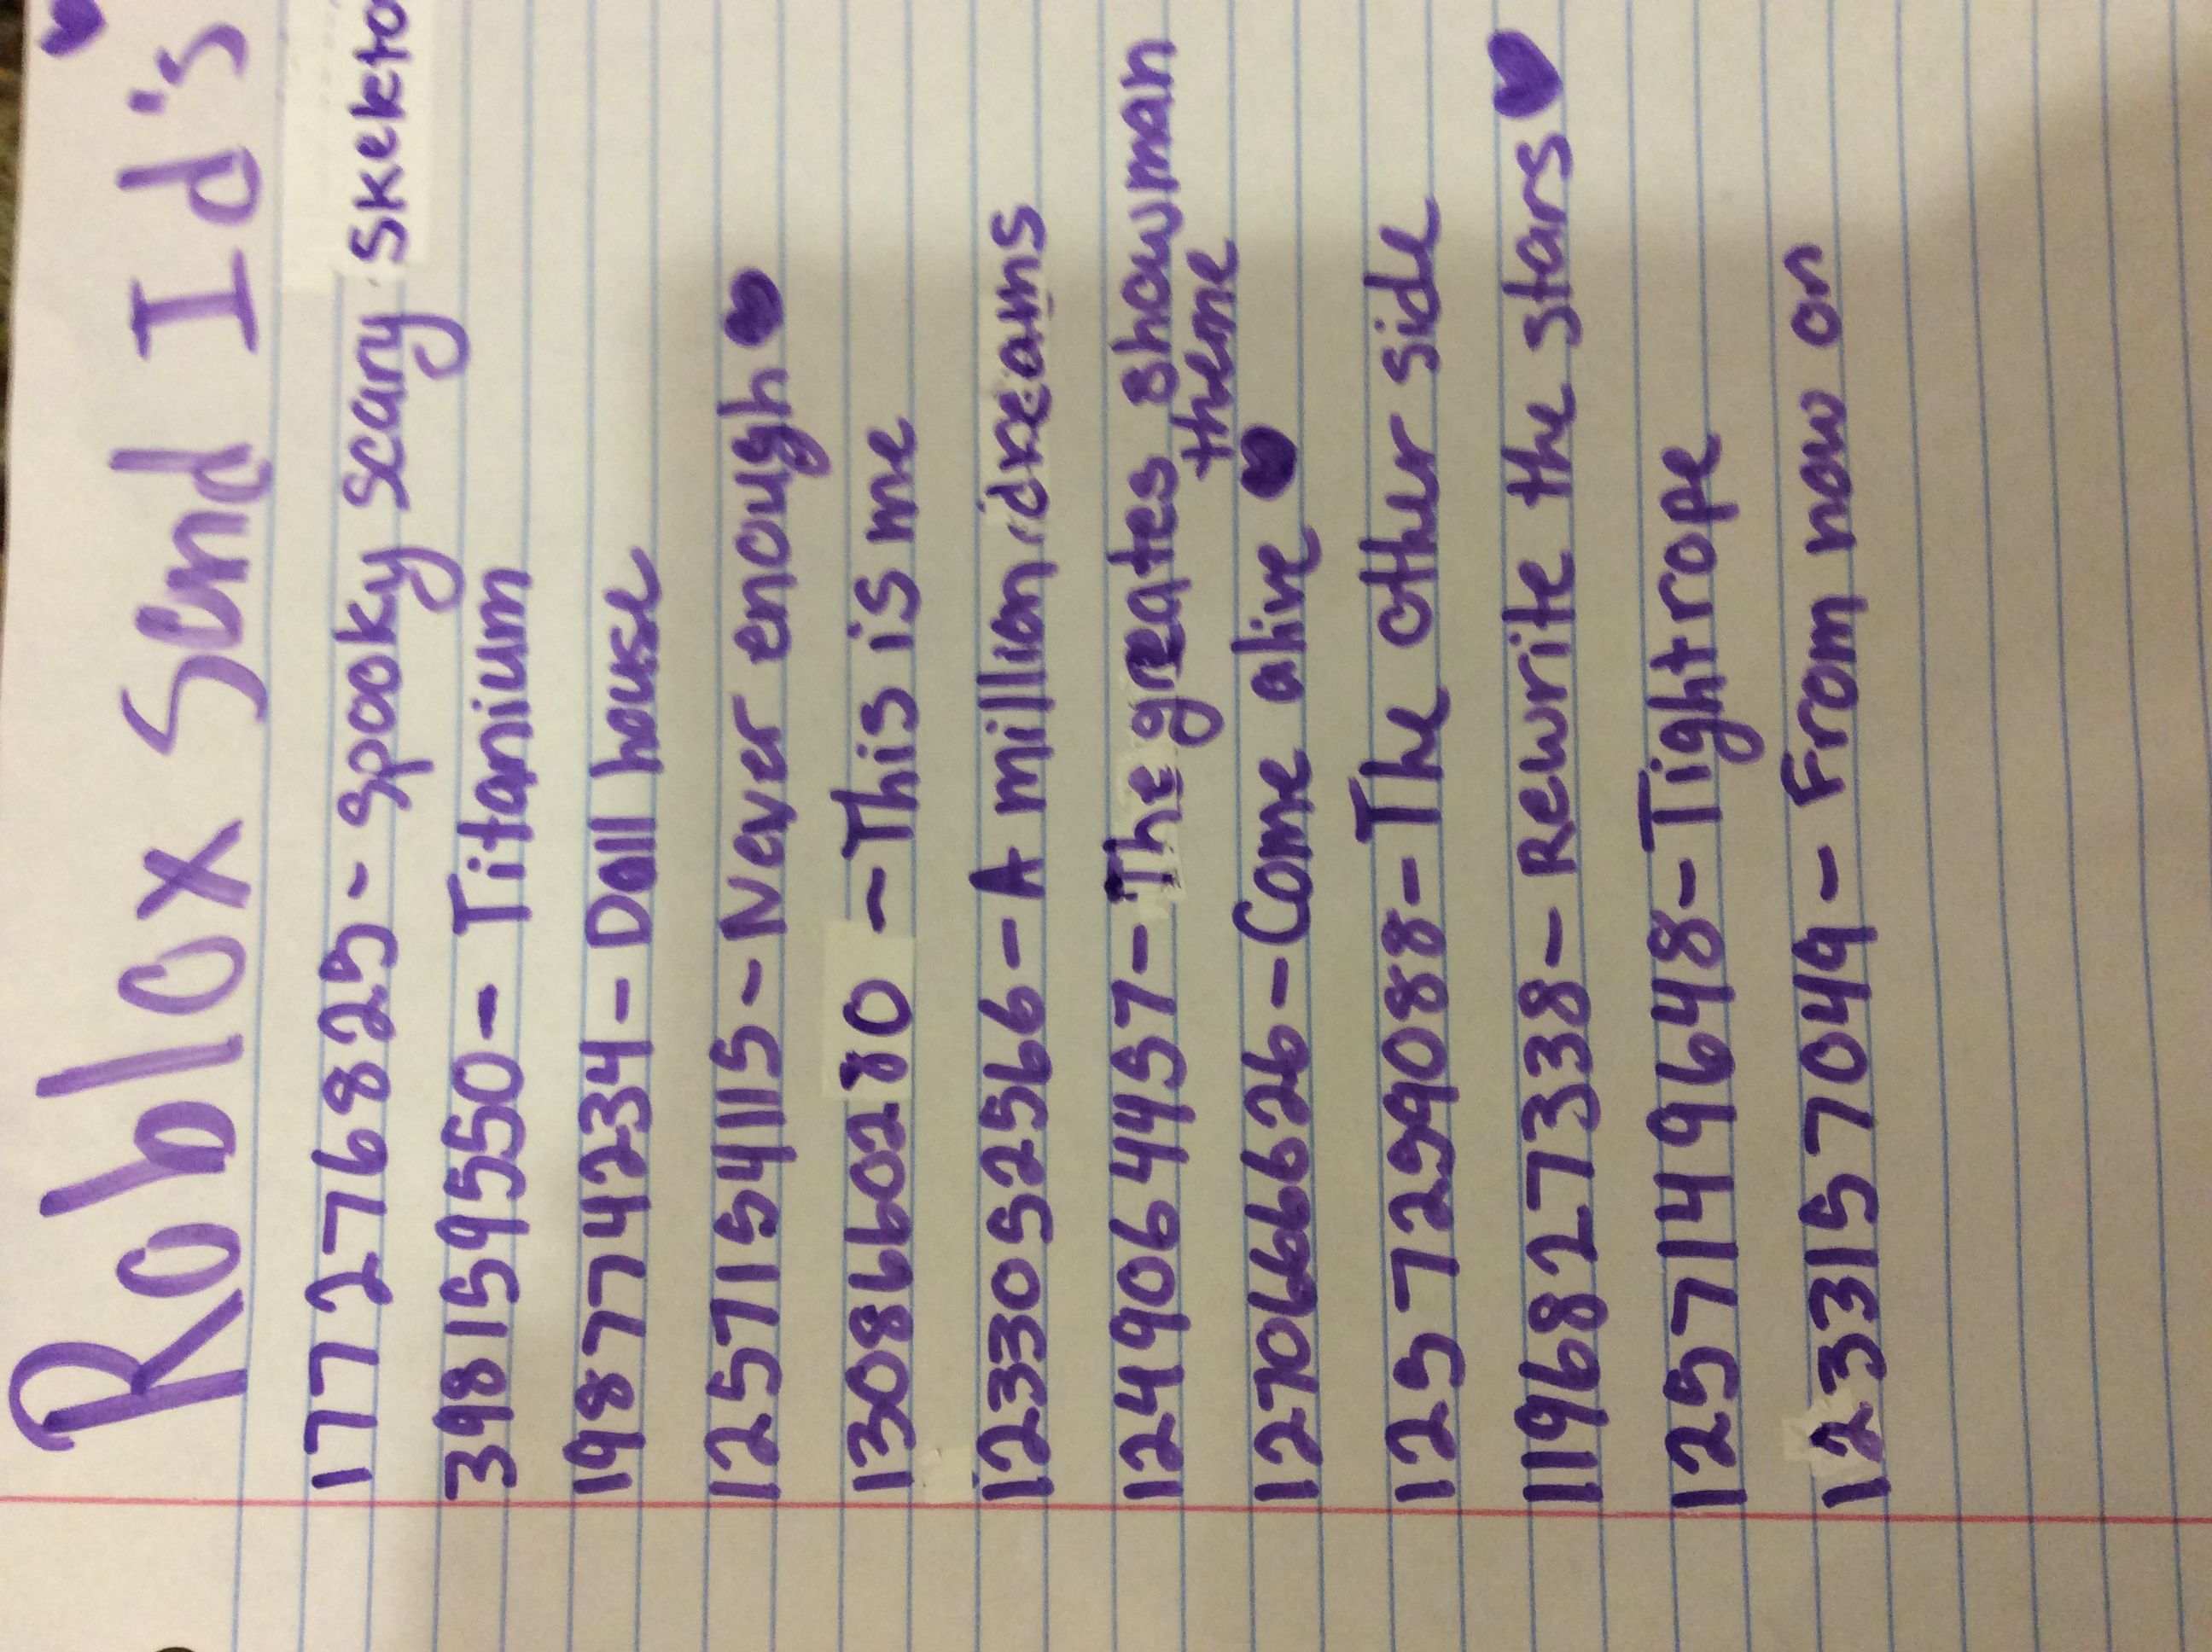 Roblox Send Id's
177276825- Spooky scary skekto
398159550- Titanium
198774234- Doll house
1257154115- Never enough
1308660280 -This is me
1233052566- A million dreams
1249064457- The greates showman
theme
1270666626-Come alive
1257299088- The other side
1196827338- Rewrite the stars
1257149648-Tightrope
1233157049- From now on